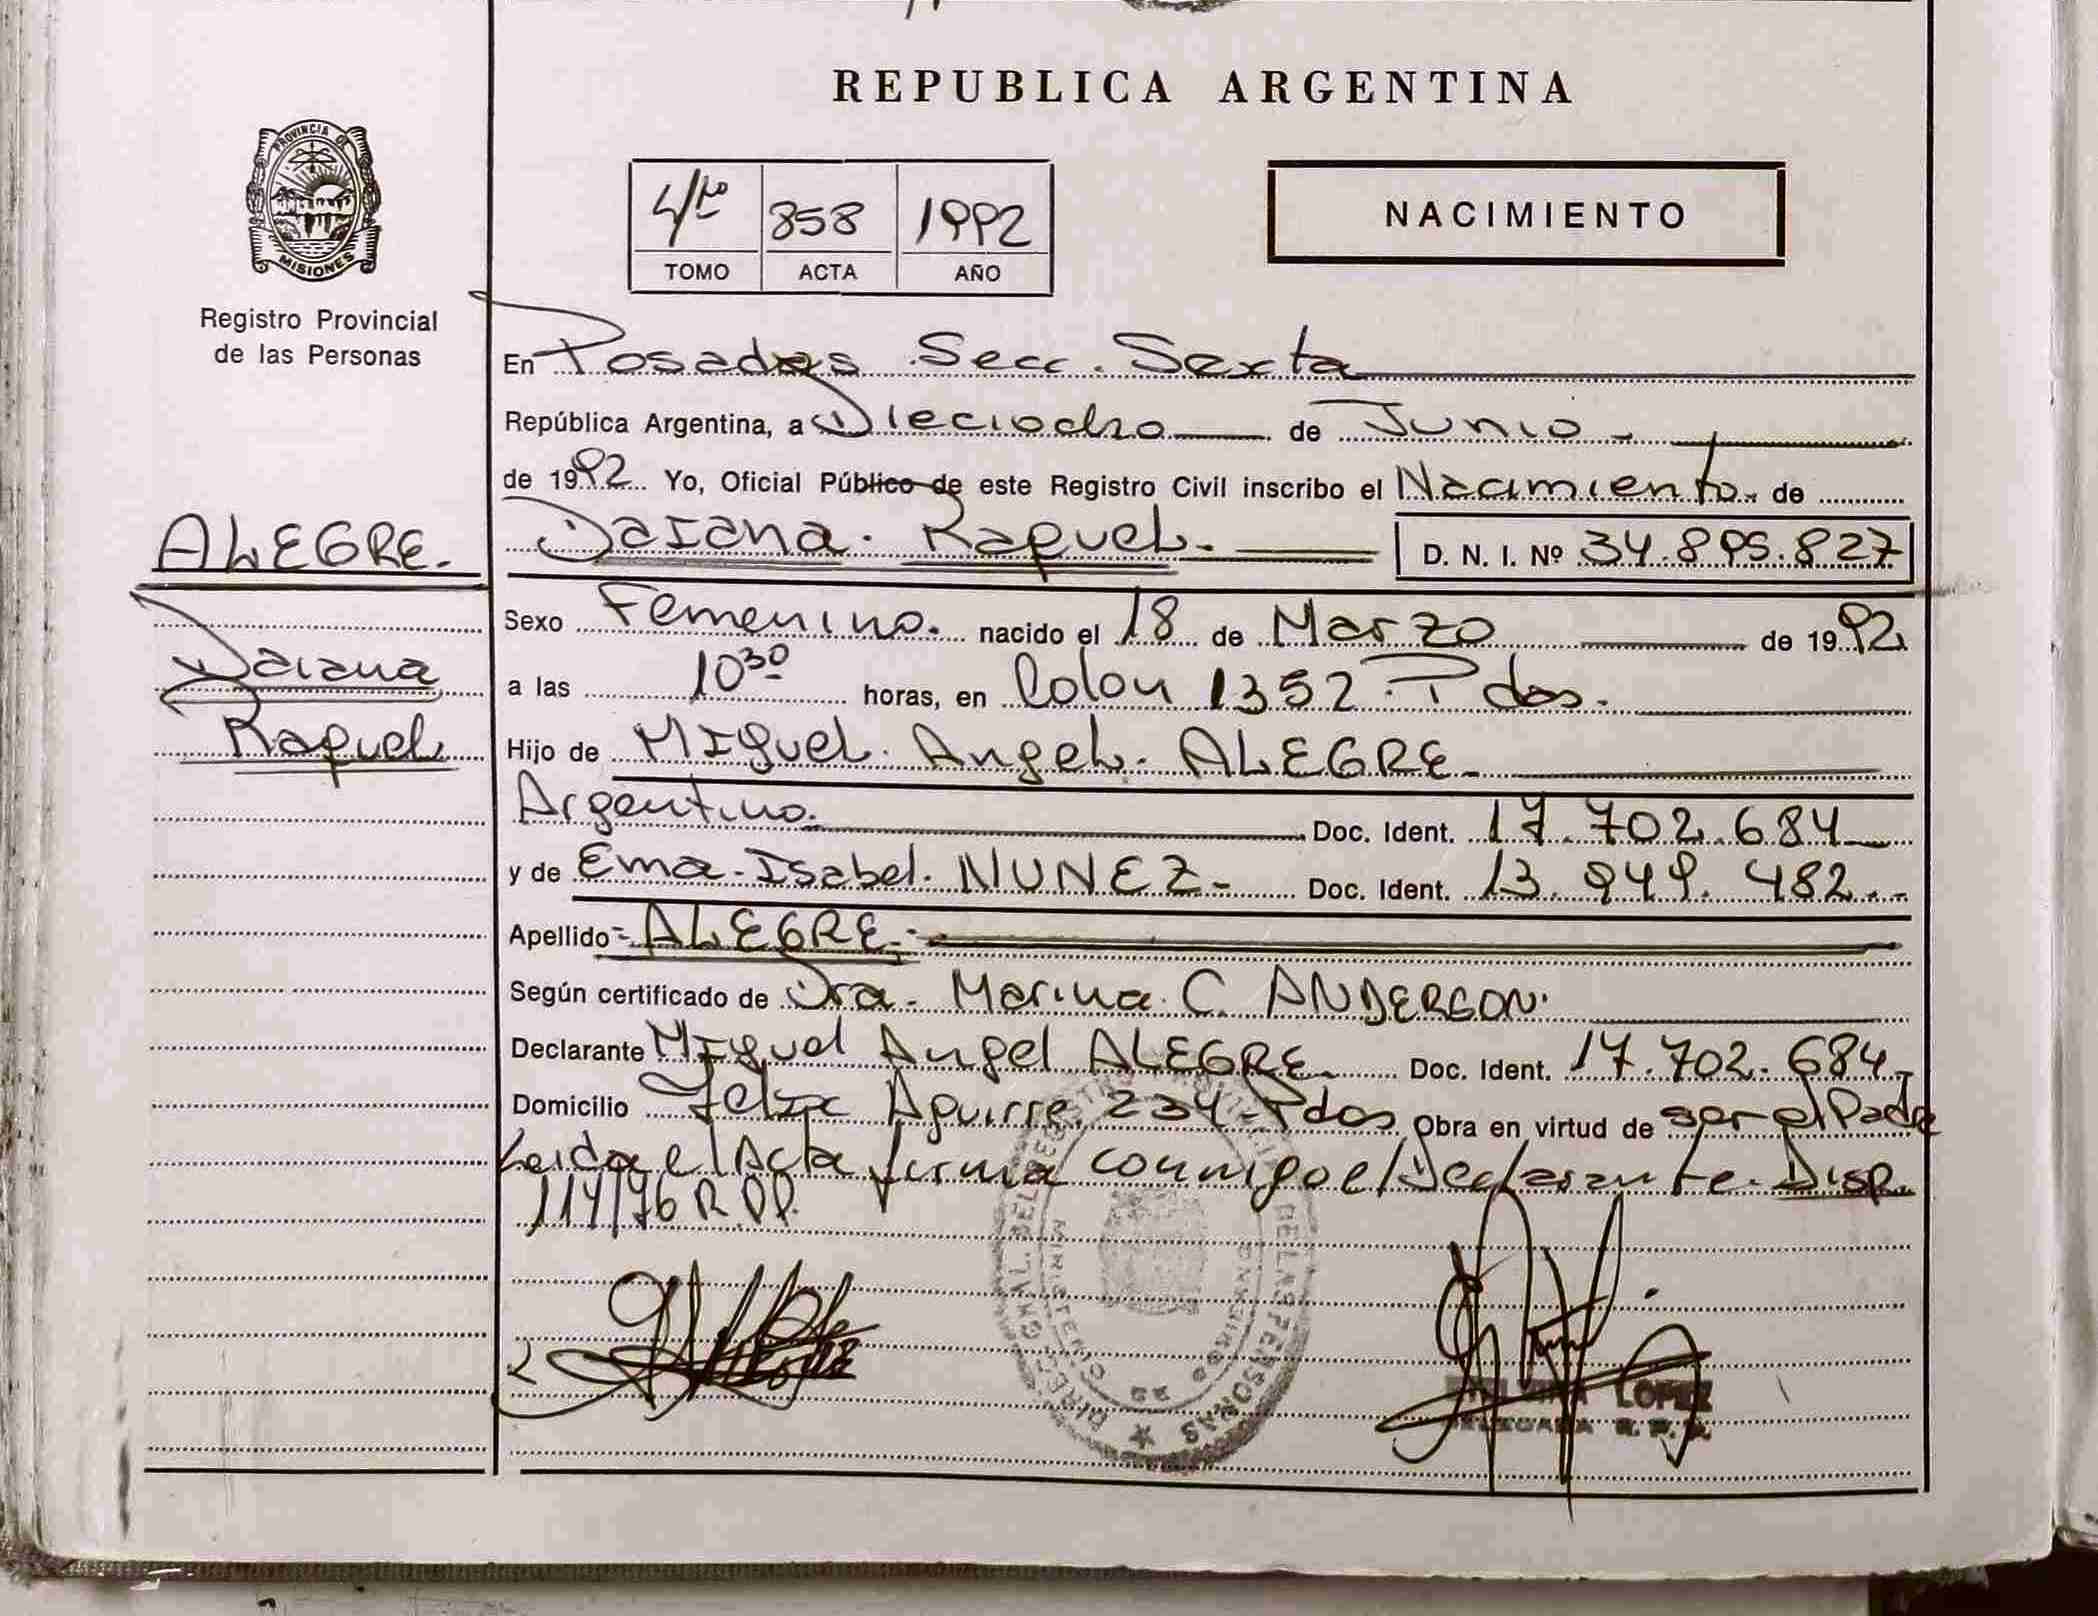 REPUBLICA ARGENTINA
PROVINCIA DE
MISIONES
Registro Provincial
de las Personas
4/to 858 1992
TOMO ACTA AÑO
NACIMIENTO
En Posadas Secc. Sexta
República Argentina, a Dieciocho de Junio
de 1992 Yo, Oficial Público de este Registro Civil inscribo el Nacimiento de
ALEGRE.
Daiana Raquel D. N. I. Nº 34.895.827
Sexo Femenino. nacido el 18 de Marzo de 1992
Daiana
Raquel
a las 10 30 horas, en Colon 1352 Pdas.
Hijo de Miguel Angel ALEGRE
Argentino. Doc. Ident. 17.702.684
y de Ema Isabel NUNEZ Doc. Ident. 13.949.482
Apellido ALEGRE
Según certificado de Dra. Marina C. ANDERSON
Declarante Miguel Angel ALEGRE Doc. Ident. 17.702.684
Domicilio Felix Aguirre 234 Pdas Obra en virtud de ser el Padre
Leida el Acta firma conmigo el Declarante. Disp.
114/76 R.PP.
DE LAS PERSONAS
MINISTERIO
LOPEZ